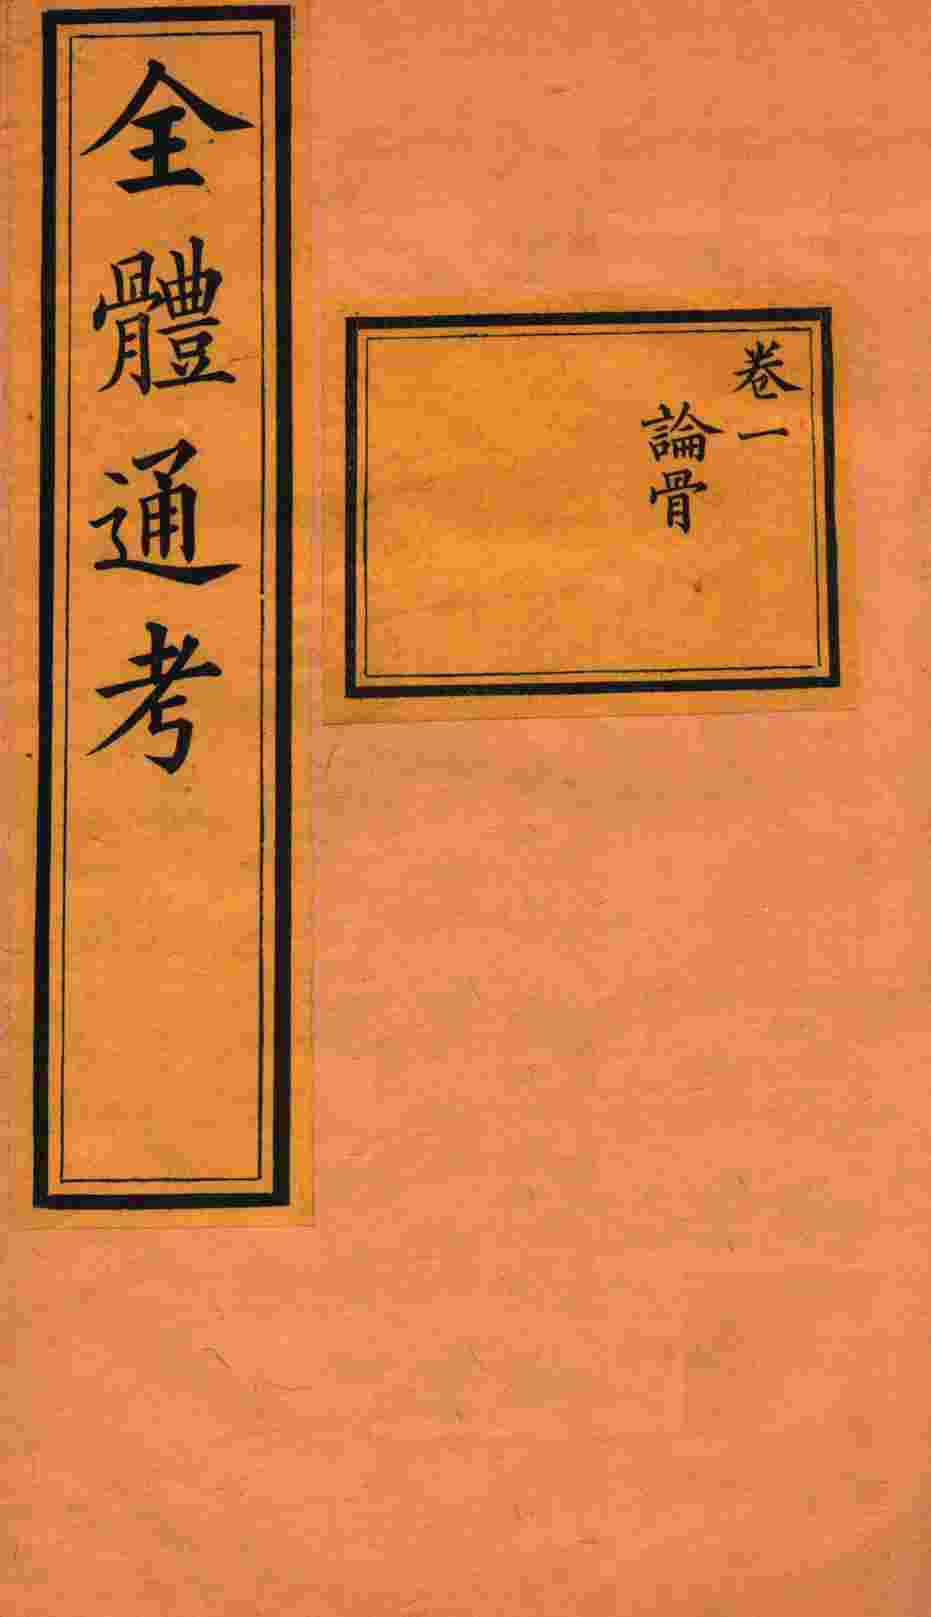 全體通考
卷一
論骨